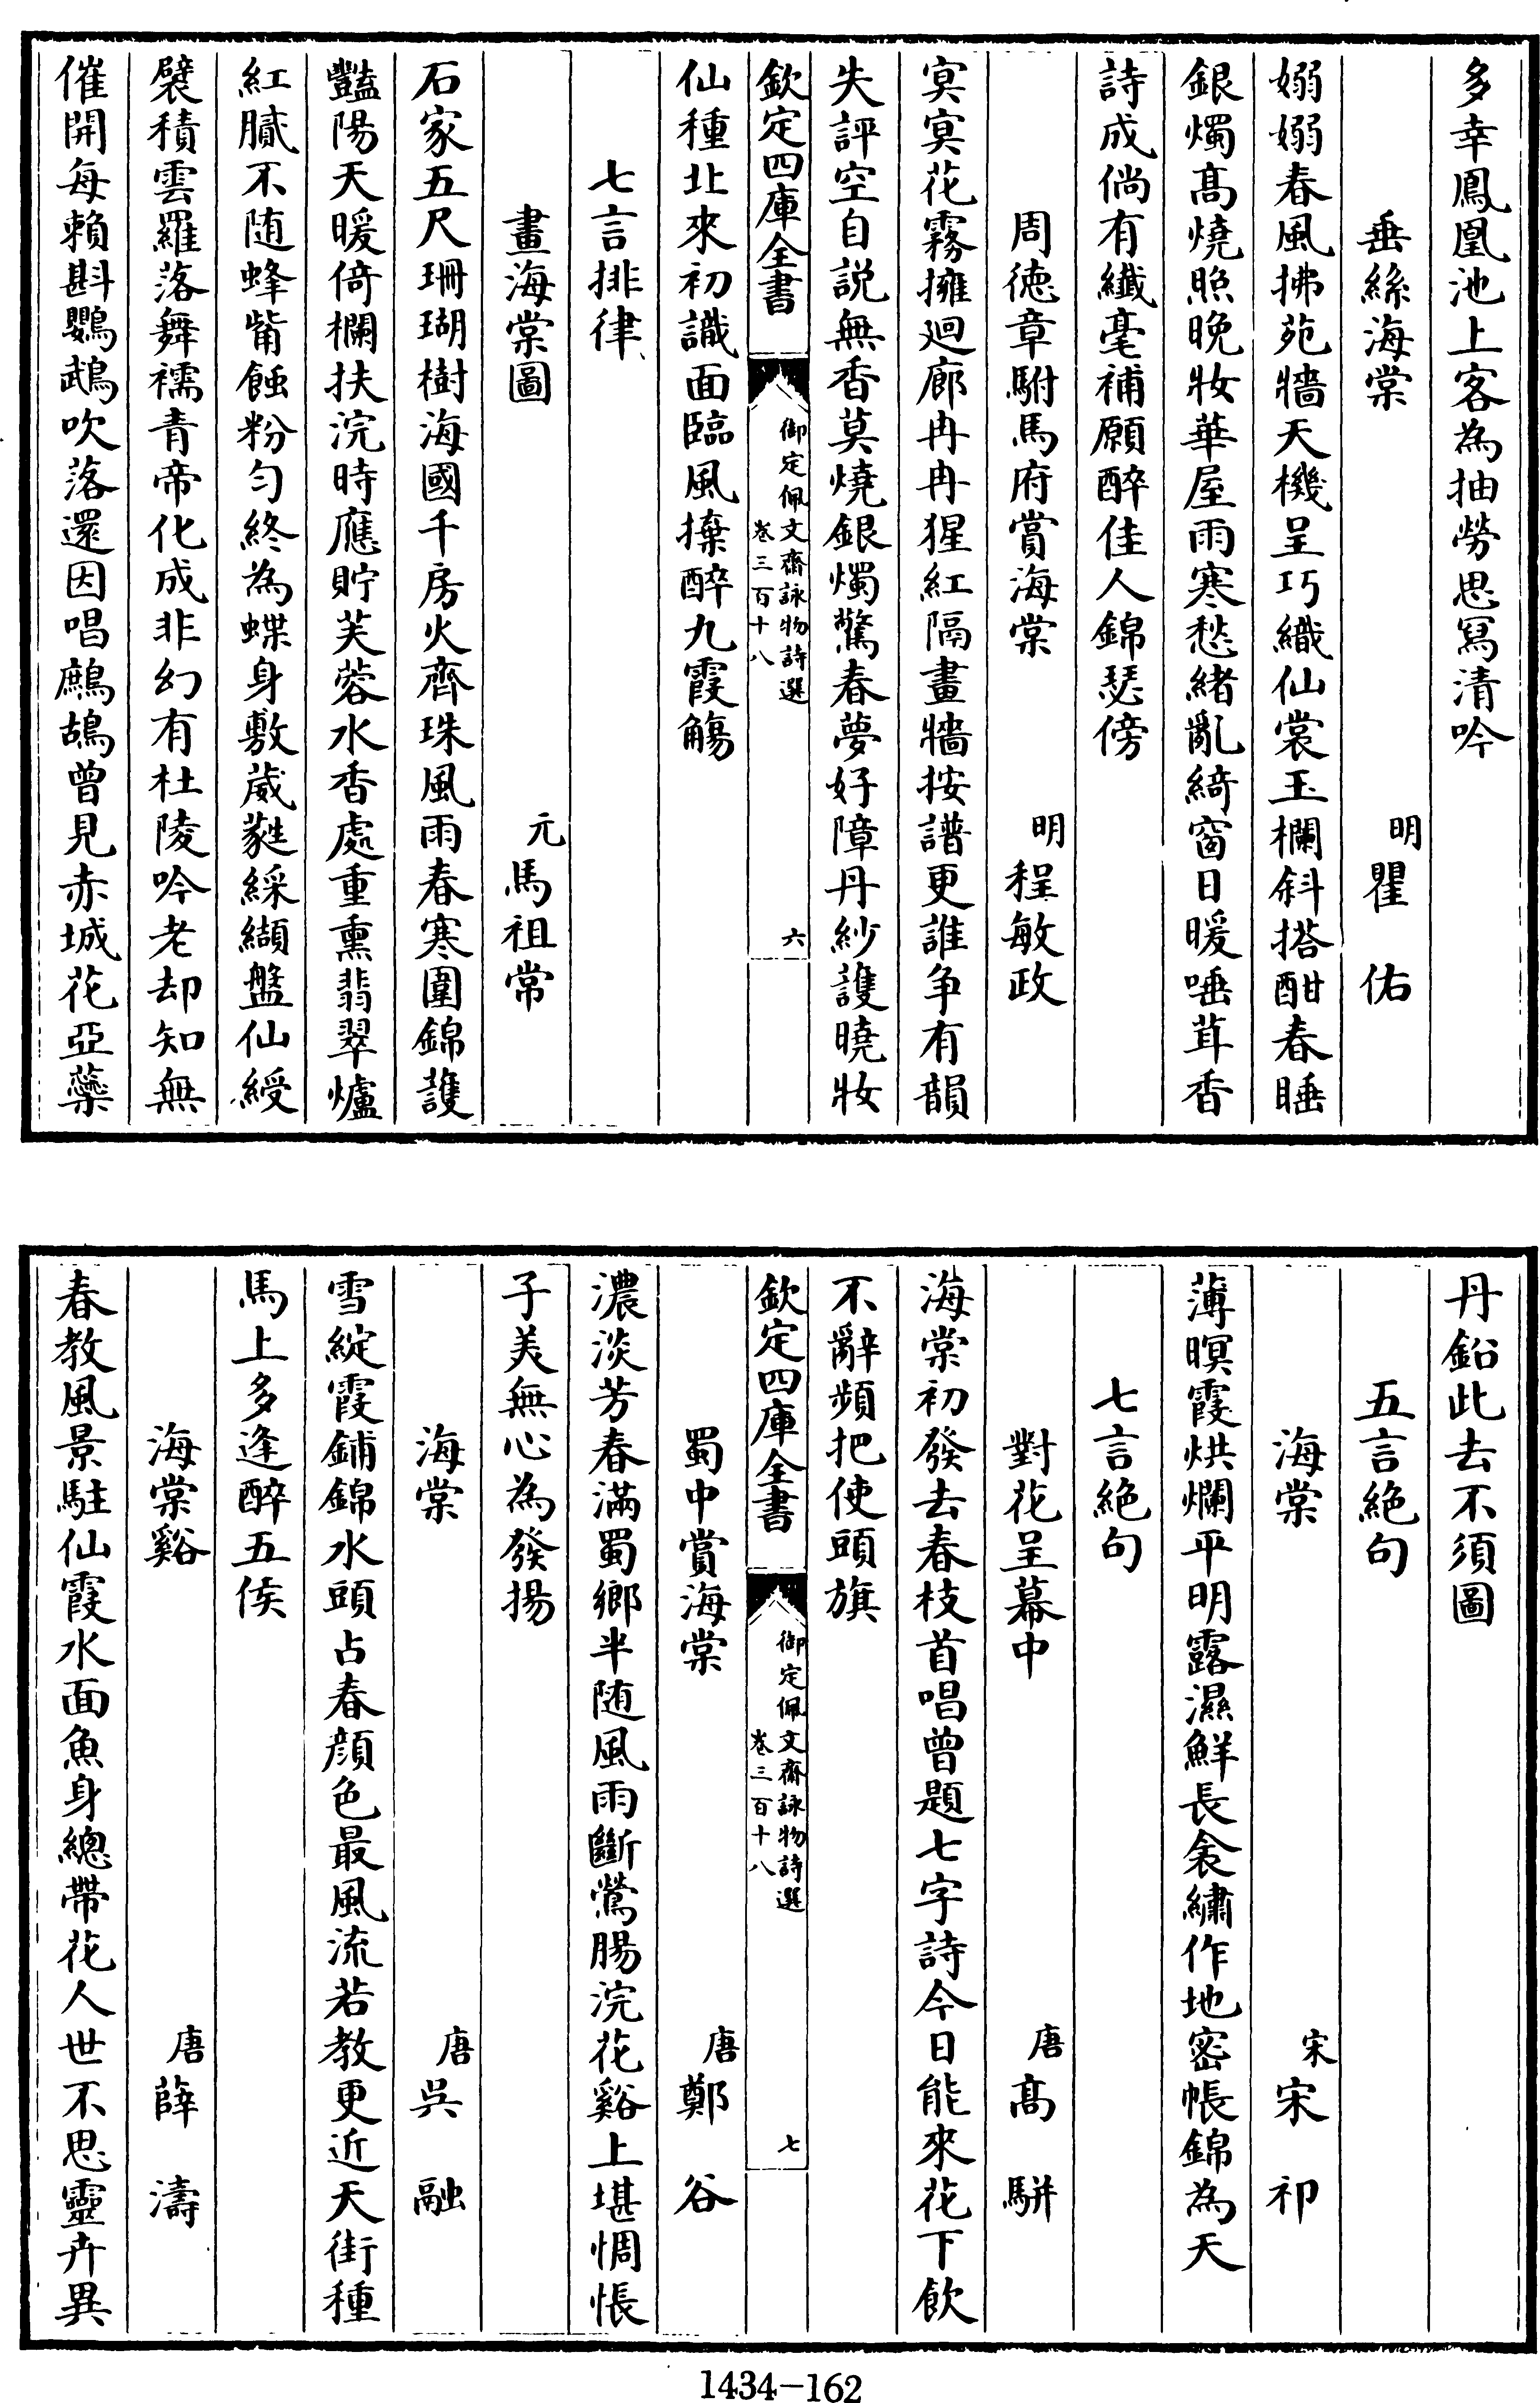 多幸鳳凰池上客為抽勞思冩清吟
垂絲海棠　明瞿佑
嫋嫋春風拂苑牆天機呈巧織仙裳玉欄斜搭酣春睡
銀燭髙燒照晚妝華屋雨寒愁緒亂綺窗日暖唾茸香
詩成倘有纎毫補願醉佳人錦瑟傍
周德章駙馬府賞海棠　明程敏政
㝠㝠花霧擁迴廊冉冉猩紅隔畫牆按譜更誰争有韻
失評空自説無香莫燒銀燭驚春夢好障丹紗䕶曉妝
欽定四庫全書　御定佩文齋詠物詩選　卷三百十八　六
仙種北來初識面臨風擽醉九霞觴
七言排律
畫海棠圖　元馬祖常
石家五尺珊瑚樹海國千房火齊珠風雨春寒圍錦䕶
豔陽天暖倚欄扶浣時應貯芙蓉水香處重熏翡翠爐
紅膩不随蜂觜蝕粉匀終為蝶身敷葳蕤綵纈盤仙綬
襞積雲羅落舞襦青帝化成非幻有杜陵吟老却知無
催開每賴斟鸚鵡吹落還因唱鷓鴣曾見赤城花亞蘂
丹鉛此去不須圖
五言絶句
海棠　宋宋祁
薄暝霞烘爛平明露濕鮮長衾繡作地密帳錦為天
七言絶句
對花呈幕中　唐髙駢
海棠初發去春枝首唱曾題七字詩今日能來花下飲
不辭頻把使頭旗
欽定四庫全書　御定佩文齋詠物詩選　卷三百十八　七
蜀中賞海棠　唐鄭谷
濃淡芳春滿蜀鄉半随風雨斷鶯腸浣花谿上堪惆悵
子美無心為發揚
海棠　唐吳融
雪綻霞鋪錦水頭占春顔色最風流若教更近天街種
馬上多逢醉五侯
海棠谿　唐薛濤
春教風景駐仙霞水面魚身總帶花人世不思靈卉異
1434-162